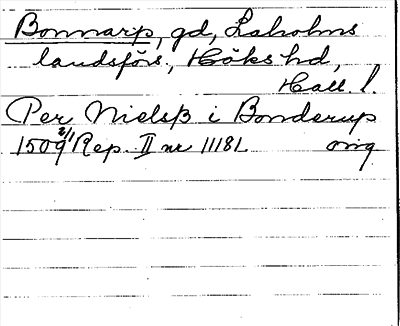 Bonnarp, gd, Laholms
landsförs., Höks hd,
Hall. l.
Per Nielsß i Bonderup
1509 2/1 Rep. II nr 11181. orig